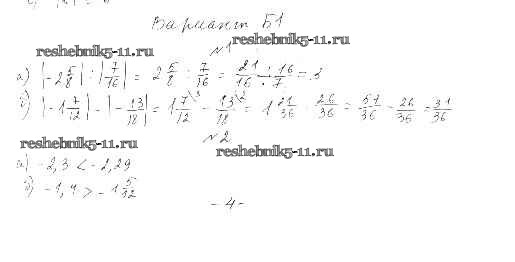 Вариант Б1
reshebnik5-11.ru
reshebnik5-11.ru
№1
а) |-2 5/8| : |7/16| = 2 5/8 : 7/16 = 21/16 · 16/7 = 3
б) |-1 7/12| - |-13/18| = 1 7/12 \3 - 13/18 \2 = 1 21/36 - 26/36 = 57/36 - 26/36 = 31/36
№2
reshebnik5-11.ru
reshebnik5-11.ru
а) -2,3 < -2,29
б) -1,4 > -1 5/32
-4-